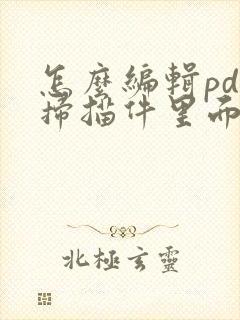 怎麼編輯pd
掃描件里
北極玄靈